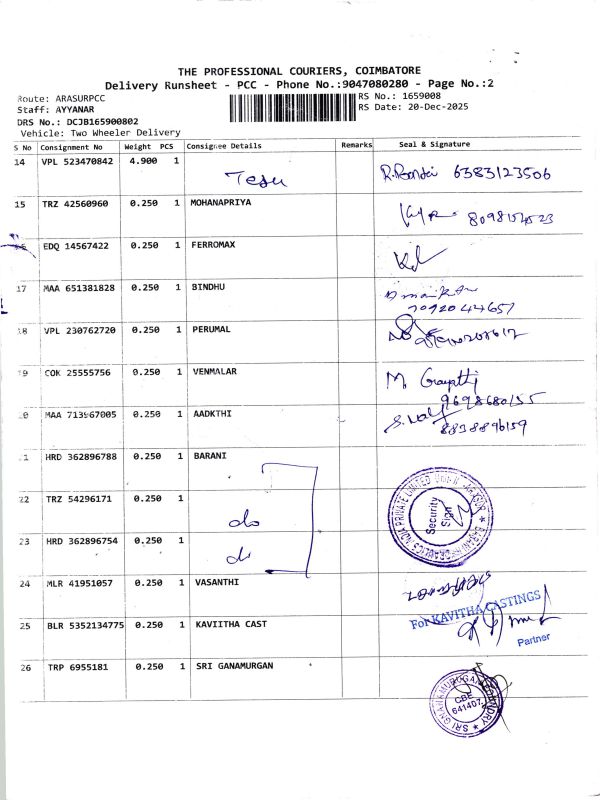 THE PROFESSIONAL COURIERS, COIMBATORE
Delivery Runsheet - PCC - Phone No.:9047080280 - Page No.:2
Route: ARASURPCC
RS No.: 1659008
Staff: AYYANAR
RS Date: 20-Dec-2025
DRS No.: DCJB165900802
Vehicle: Two Wheeler Delivery
S No Consignment No Weight PCS Consignee Details Remarks Seal & Signature
14 VPL 523470842 4.900 1 6383123506
15 TRZ 42560960 0.250 1 MOHANAPRIYA
EDQ 14567422 0.250 1 FERROMAX
17 MAA 651381828 0.250 1 BINDHU
18 VPL 230762720 0.250 1 PERUMAL
19 COK 25555756 0.250 1 VENMALAR M.
9698680155
MAA 713967005 0.250 1 AADKTHI
8838896159
HRD 362896788 0.250 1 BARANI
22 TRZ 54296171 0.250 1 do
Security
Sign
23 HRD 362896754 0.250 1 do
24 MLR 41951057 0.250 1 VASANTHI
For KAVITHA CASTINGS
25 BLR 5352134775 0.250 1 KAVIITHA CAST
Partner
26 TRP 6955181 0.250 1 SRI GANAMURGAN
CBE
641407